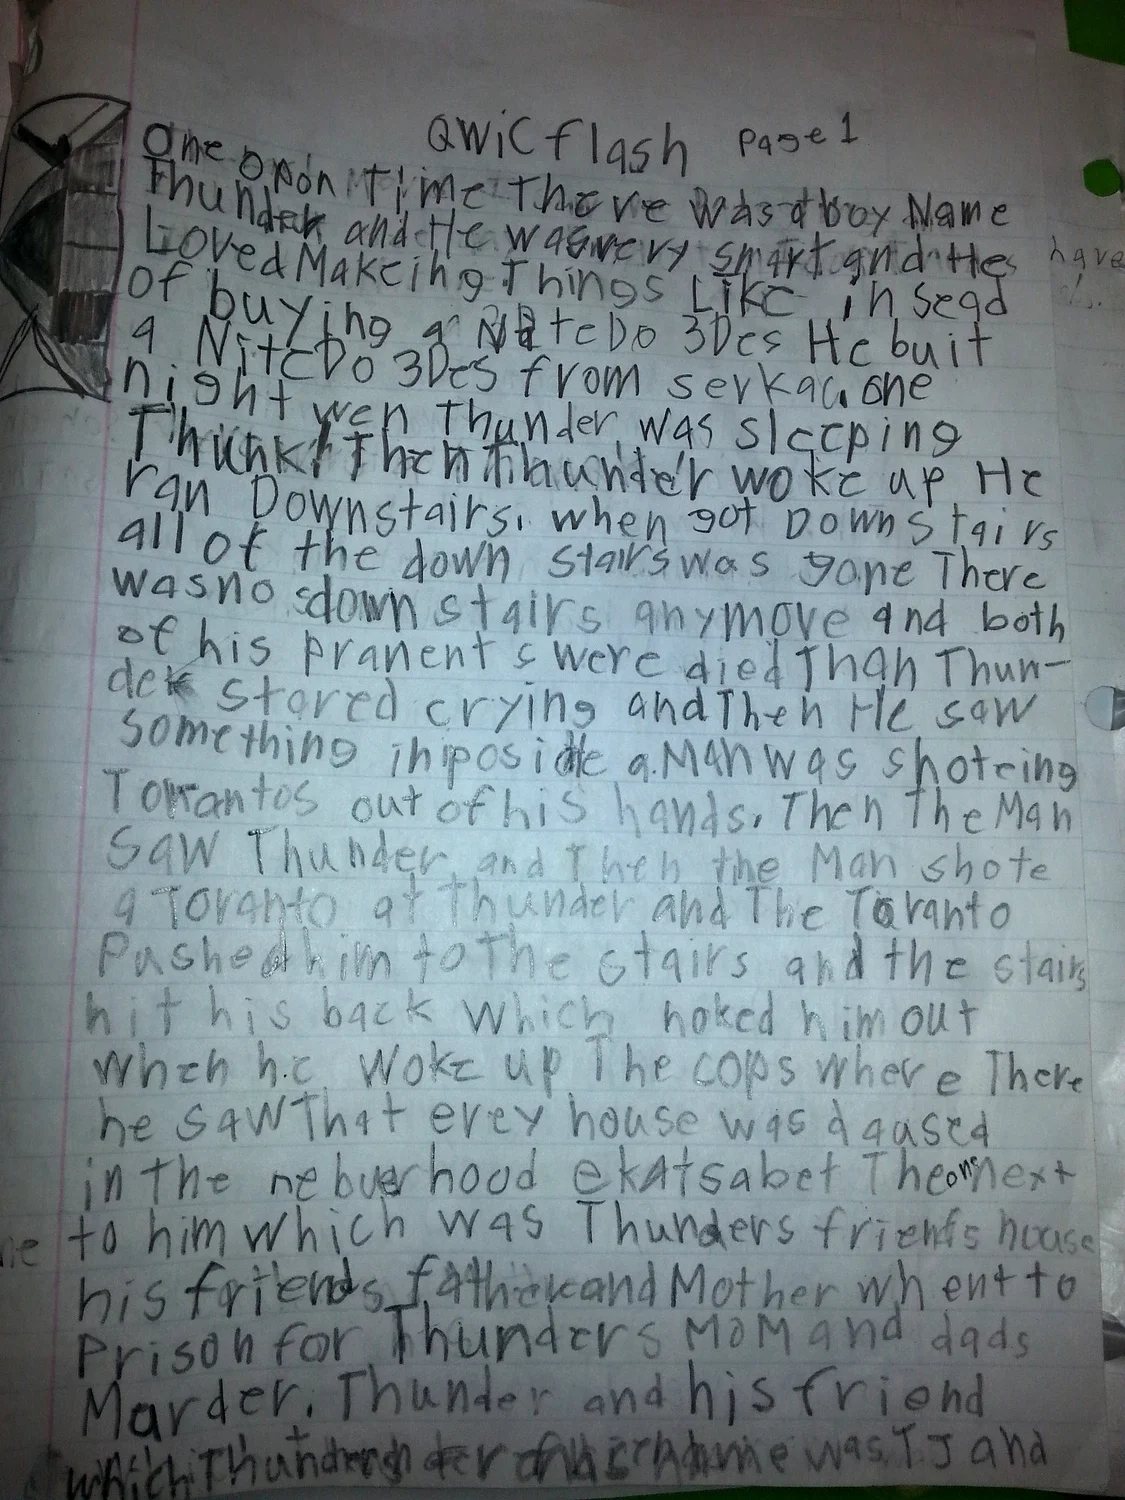 QWiC flash Page 1
One opon time there was a boy Name
Thunder and He was very smart and Hes
Loved Makeing Things Like insead
of buying a NiteDo 3Des He buit
a NiteDo 3Des from serkac, one
night wen Thunder was sleeping
Thunk! Then Thaunder woke up He
ran Downstairs. when got Downstairs
all of the down stairs was gone There
was no down stairs anymore and both
of his pranents were died Than Thun-
der stared crying and Then He saw
something inposidle a Man was shoteing
Torrantos out of his hands. Then The Man
Saw Thunder and Then the Man shote
a Toranto at Thunder and The Toranto
Pushed him to The stairs and the stairs
hit his back which noked him out
when he woke up The cops where There
he saw That evey house was daaused
in the nebuerhood ekatsabet The one next
to him which was Thunders friends house
his friends father and Mother whent to
Prison for Thunders MoM and dads
Marder. Thunder and his friend
which name was TJ and
have